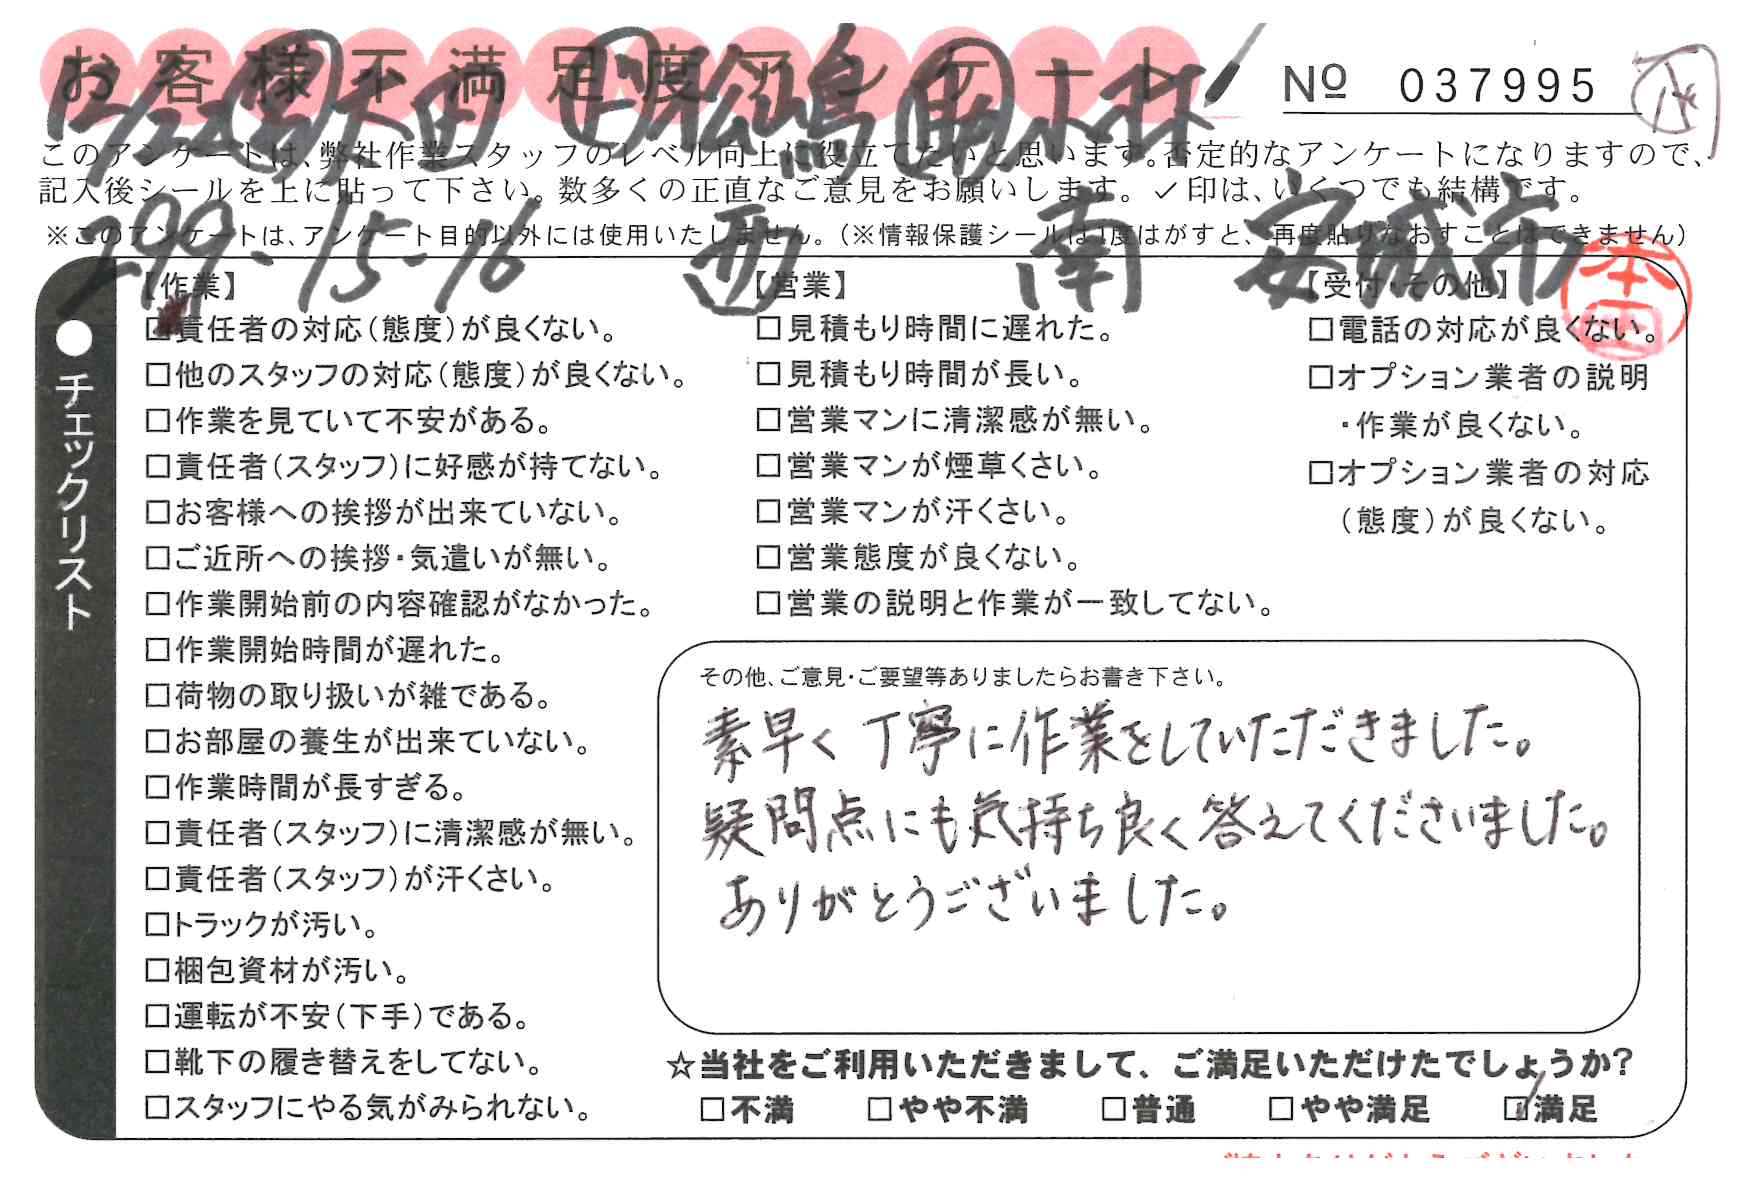 お客様不満足度アンケート
№ 037995
このアンケートは、弊社作業スタッフのレベル向上に役立てたいと思います。否定的なアンケートになりますので、
記入後シールを上に貼って下さい。数多くの正直なご意見をお願いします。✓印は、いくつでも結構です。
※このアンケートは、アンケート目的以外には使用いたしません。（※情報保護シールは1度はがすと、再度貼りなおすことはできません）
299-15-16 西 南 安城市
本田
●チェックリスト
【作業】
□責任者の対応（態度）が良くない。
□他のスタッフの対応（態度）が良くない。
□作業を見ていて不安がある。
□責任者（スタッフ）に好感が持てない。
□お客様への挨拶が出来ていない。
□ご近所への挨拶・気遣いが無い。
□作業開始前の内容確認がなかった。
□作業開始時間が遅れた。
□荷物の取り扱いが雑である。
□お部屋の養生が出来ていない。
□作業時間が長すぎる。
□責任者（スタッフ）に清潔感が無い。
□責任者（スタッフ）が汗くさい。
□トラックが汚い。
□梱包資材が汚い。
□運転が不安（下手）である。
□靴下の履き替えをしてない。
□スタッフにやる気がみられない。
【営業】
□見積もり時間に遅れた。
□見積もり時間が長い。
□営業マンに清潔感が無い。
□営業マンが煙草くさい。
□営業マンが汗くさい。
□営業態度が良くない。
□営業の説明と作業が一致してない。
【受付・その他】
□電話の対応が良くない。
□オプション業者の説明
・作業が良くない。
□オプション業者の対応
（態度）が良くない。
その他、ご意見・ご要望等ありましたらお書き下さい。
素早く丁寧に作業をしていただきました。
疑問点にも気持ち良く答えてくださいました。
ありがとうございました。
☆当社をご利用いただきまして、ご満足いただけたでしょうか？
□不満 □やや不満 □普通 □やや満足 ☑満足